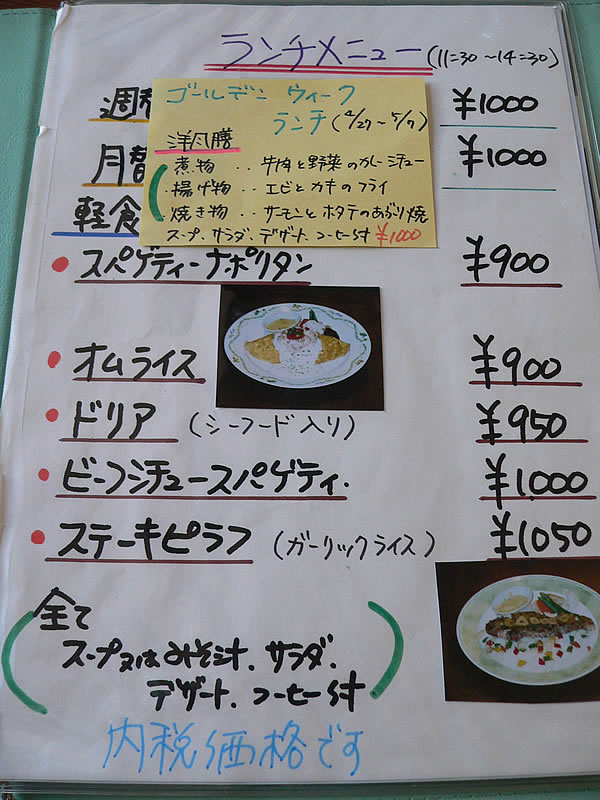 ランチメニュー (11:30 ~14:30)
週替 ¥1000
ゴールデン ウィーク
ランチ (4/27~5/7)
洋月膳
煮物 ‥ 牛肉と野菜のカレーシチュー
揚げ物 ‥ エビとカキのフライ
焼き物 ‥ サーモンとホタテのあぶり焼
スープ、サラダ、デザート、コーヒー付 ¥1000
月替 ¥1000
軽食
スパゲティーナポリタン ¥900
オムライス ¥900
ドリア (シーフード入り) ¥950
ビーフシチュースパゲティ. ¥1000
ステーキピラフ (ガーリックライス) ¥1050
全て
スープ又はみそ汁、サラダ、
デザート、コーヒー付
内税価格です